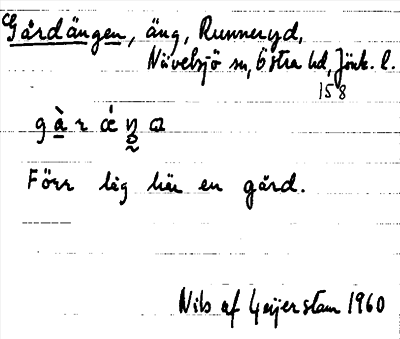 Gårdängen, äng, Runneryd,
Nävelsjö sn, Östra hd, Jönk. l.
158
Förr låg här en gård.
Nils af Geijerstam 1960